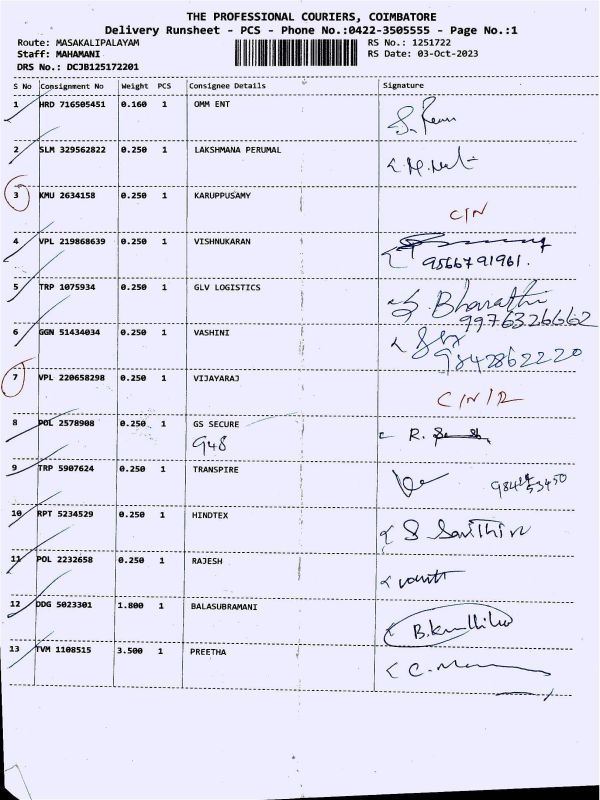 THE PROFESSIONAL COURIERS, COIMBATORE
Delivery Runsheet - PCS - Phone No.:0422-3505555 - Page No.:1
Route: MASAKALIPALAYAM RS No.: 1251722
Staff: MAHAMANI RS Date: 03-Oct-2023
DRS No.: DCJB125172201
S No Consignment No Weight PCS Consignee Details Signature
1 HRD 716505451 0.160 1 OMM ENT
2 SLM 329562822 0.250 1 LAKSHMANA PERUMAL
3 KMU 2634158 0.250 1 KARUPPUSAMY
C/N
4 VPL 219868639 0.250 1 VISHNUKARAN
9566791961.
5 TRP 1075934 0.250 1 GLV LOGISTICS
S. Bharathi
9976326662
6 GGN 51434034 0.250 1 VASHINI
9842862220
7 VPL 220658298 0.250 1 VIJAYARAJ
C/N/R
8 POL 2578908 0.250 1 GS SECURE
948 R.
9 TRP 5907624 0.250 1 TRANSPIRE
10 RPT 5234529 0.250 1 HINDTEX
11 POL 2232658 0.250 1 RAJESH
12 DDG 5023301 1.800 1 BALASUBRAMANI
13 TVM 1108515 3.500 1 PREETHA